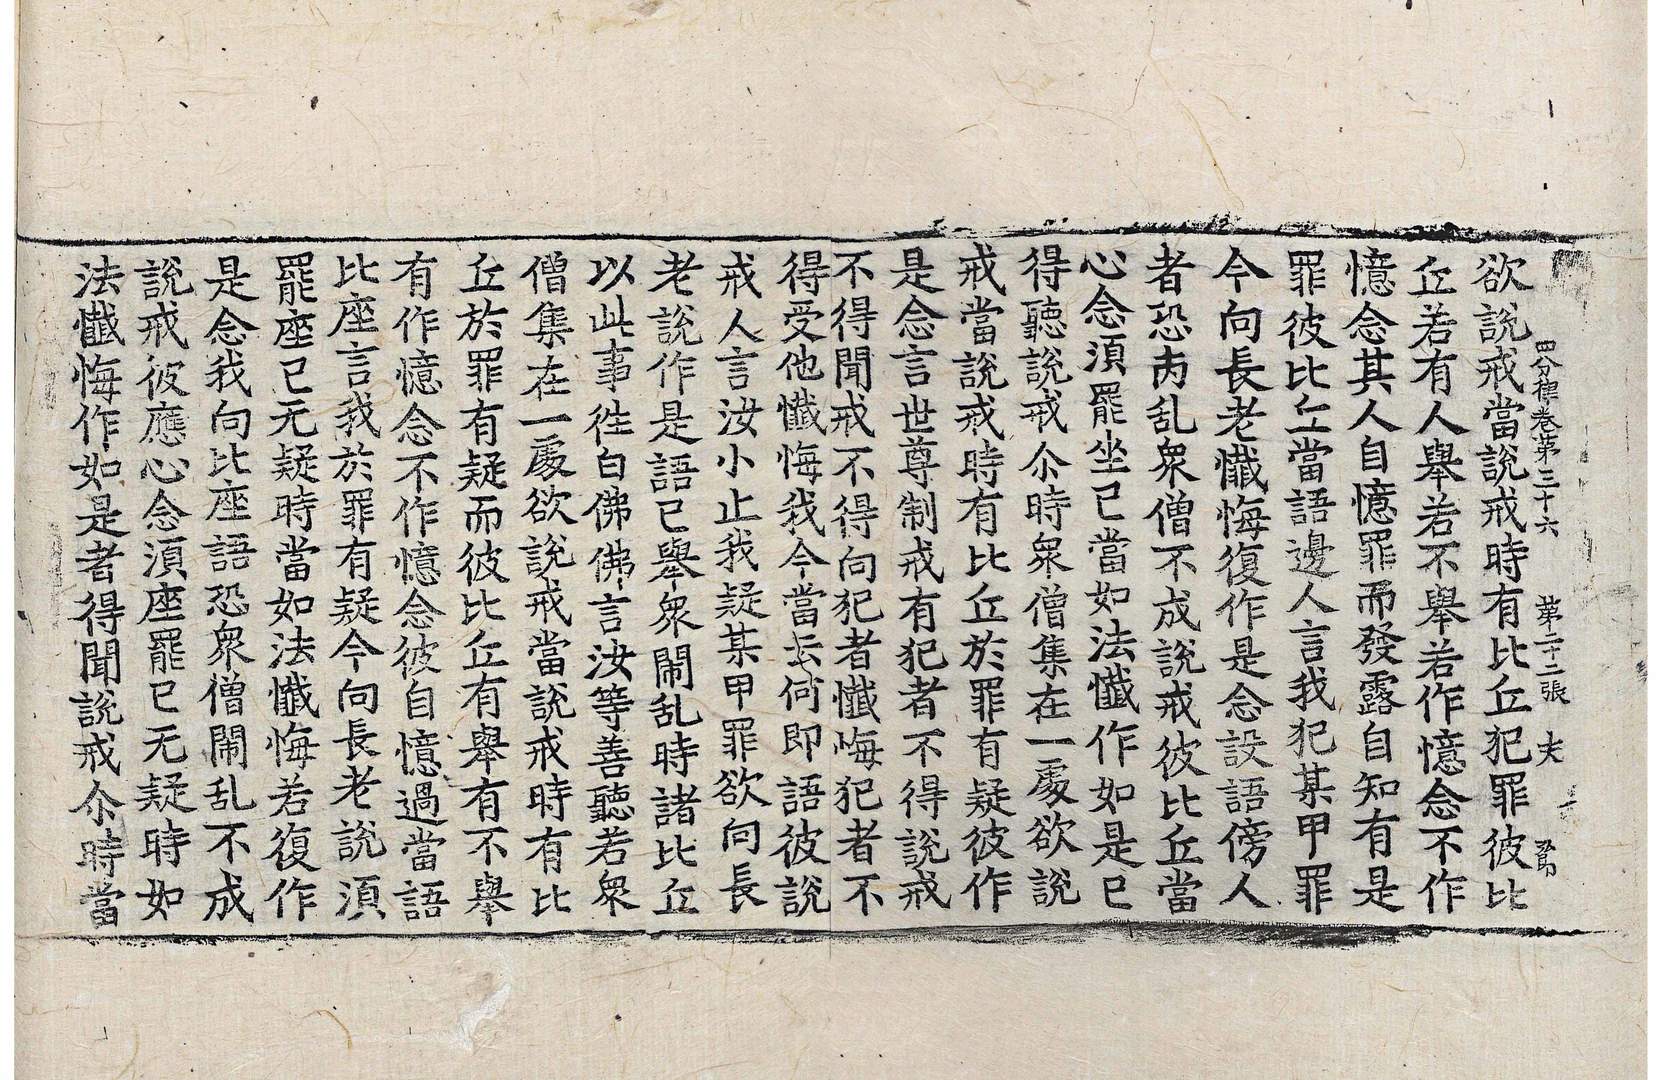 四分律卷第三十六 第二十二張 夫
欲說戒當說戒時有比丘犯罪彼比
丘若有人舉若不舉若作憶念不作
憶念其人自憶罪而發露自知有是
罪彼比丘當語邊人言我犯某甲罪
今向長老懺悔復作是念設語傍人
者恐鬧乱衆僧不成說戒彼比丘當
心念須罷坐已當如法懺作如是已
得聽說戒尒時衆僧集在一處欲說
戒當說戒時有比丘於罪有疑彼作
是念言世尊制戒有犯者不得說戒
不得聞戒不得向犯者懺悔犯者不
得受他懺悔我今當云何即語彼說
戒人言汝小止我疑某甲罪欲向長
老說作是語已舉衆鬧乱時諸比丘
以此事徃白佛佛言汝等善聽若衆
僧集在一處欲說戒當說戒時有比
丘於罪有疑而彼比丘有舉有不舉
有作憶念不作憶念彼自憶過當語
比座言我於罪有疑今向長老說須
罷座已无疑時當如法懺悔若復作
是念我向比座語恐衆僧鬧乱不成
說戒彼應心念須座罷已无疑時如
法懺悔作如是者得聞說戒尒時當